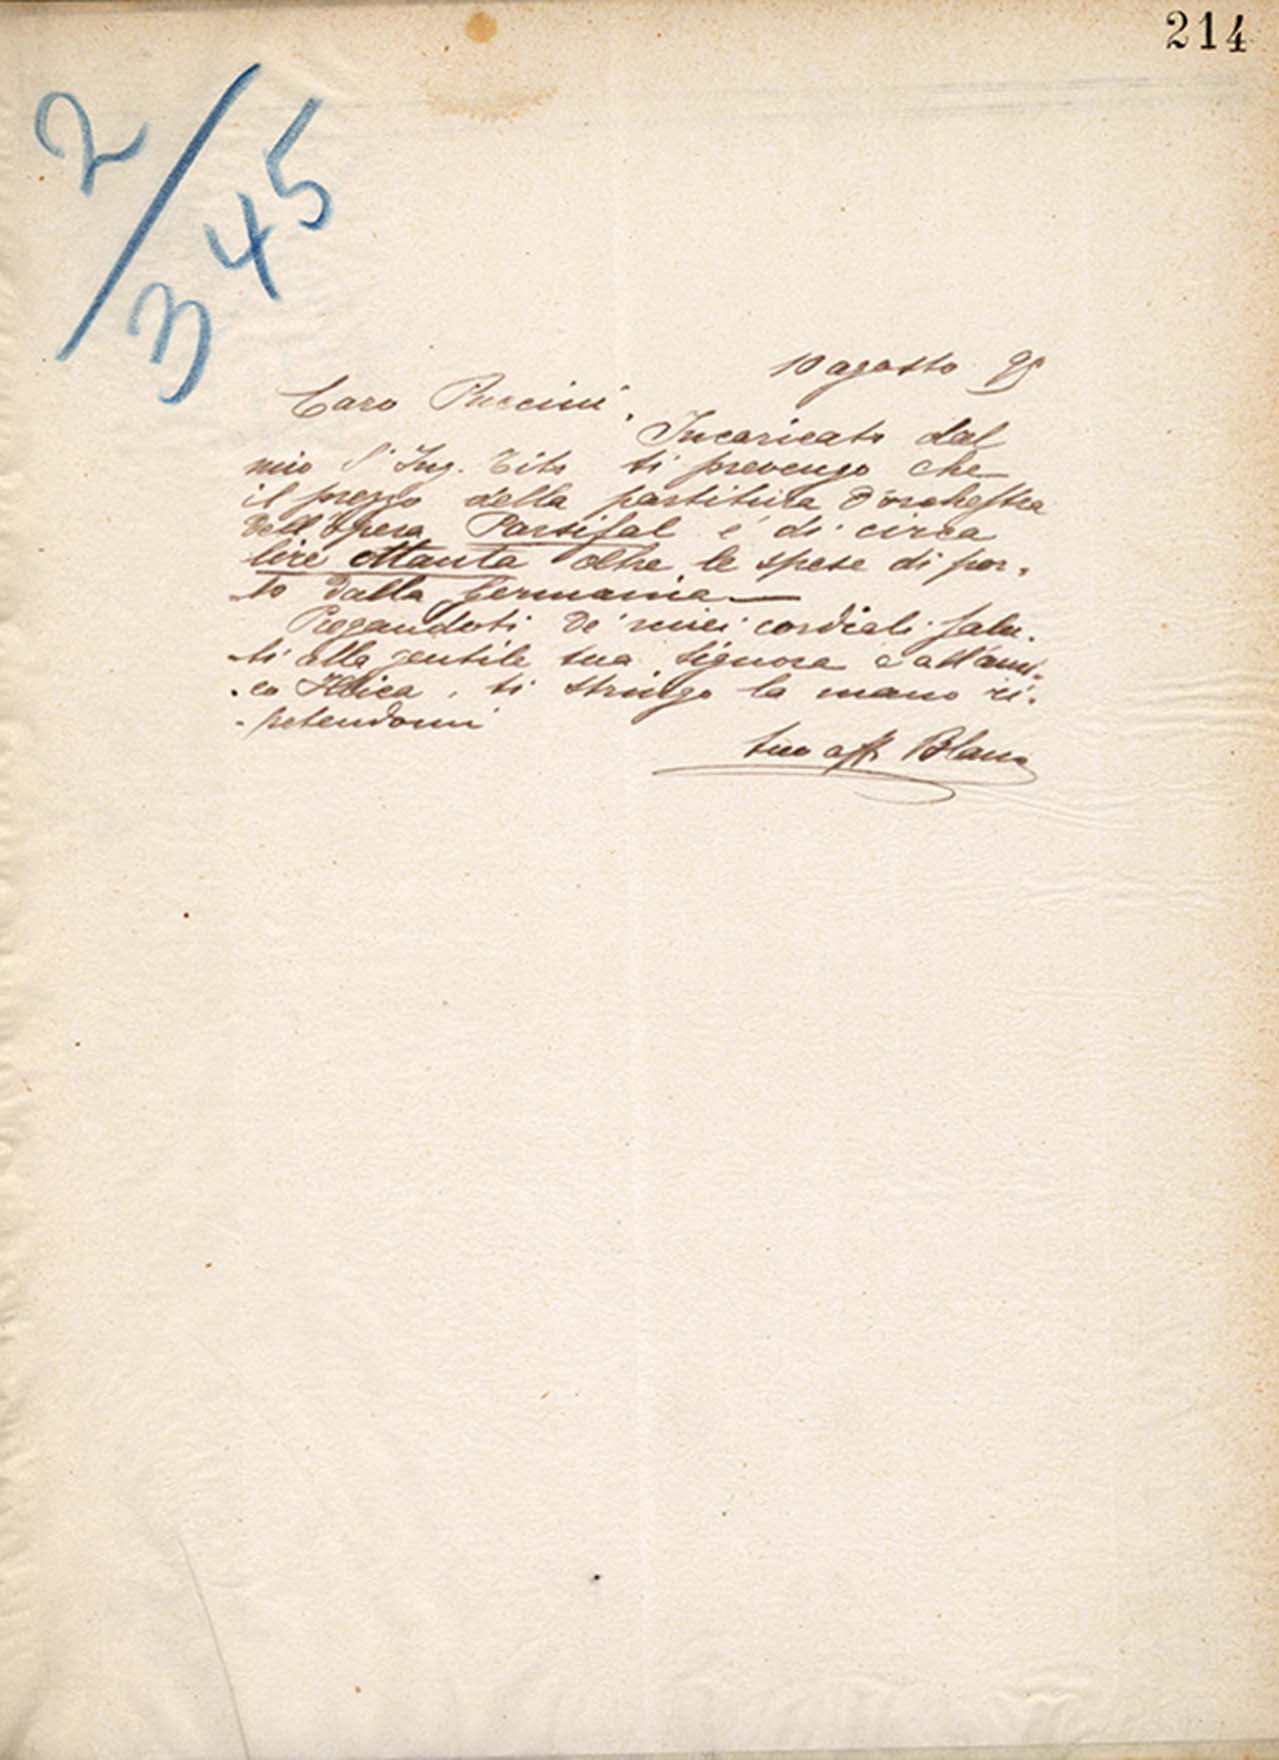 214
2/345
10 agosto 95
Caro Puccini,
Incaricato dal
mio Sr Ing. Tito ti prevengo che
il prezzo della partitura d'orchestra
dell'opera Parsifal è di circa
lire ottanta oltre le spese di por-
-to dalla Germania —
Pregandoti de' miei cordiali salu-
-ti alla gentile tua Signora e all'ami-
-co Illica, ti stringo la mano ri-
-petendomi
tuo aff Blanc